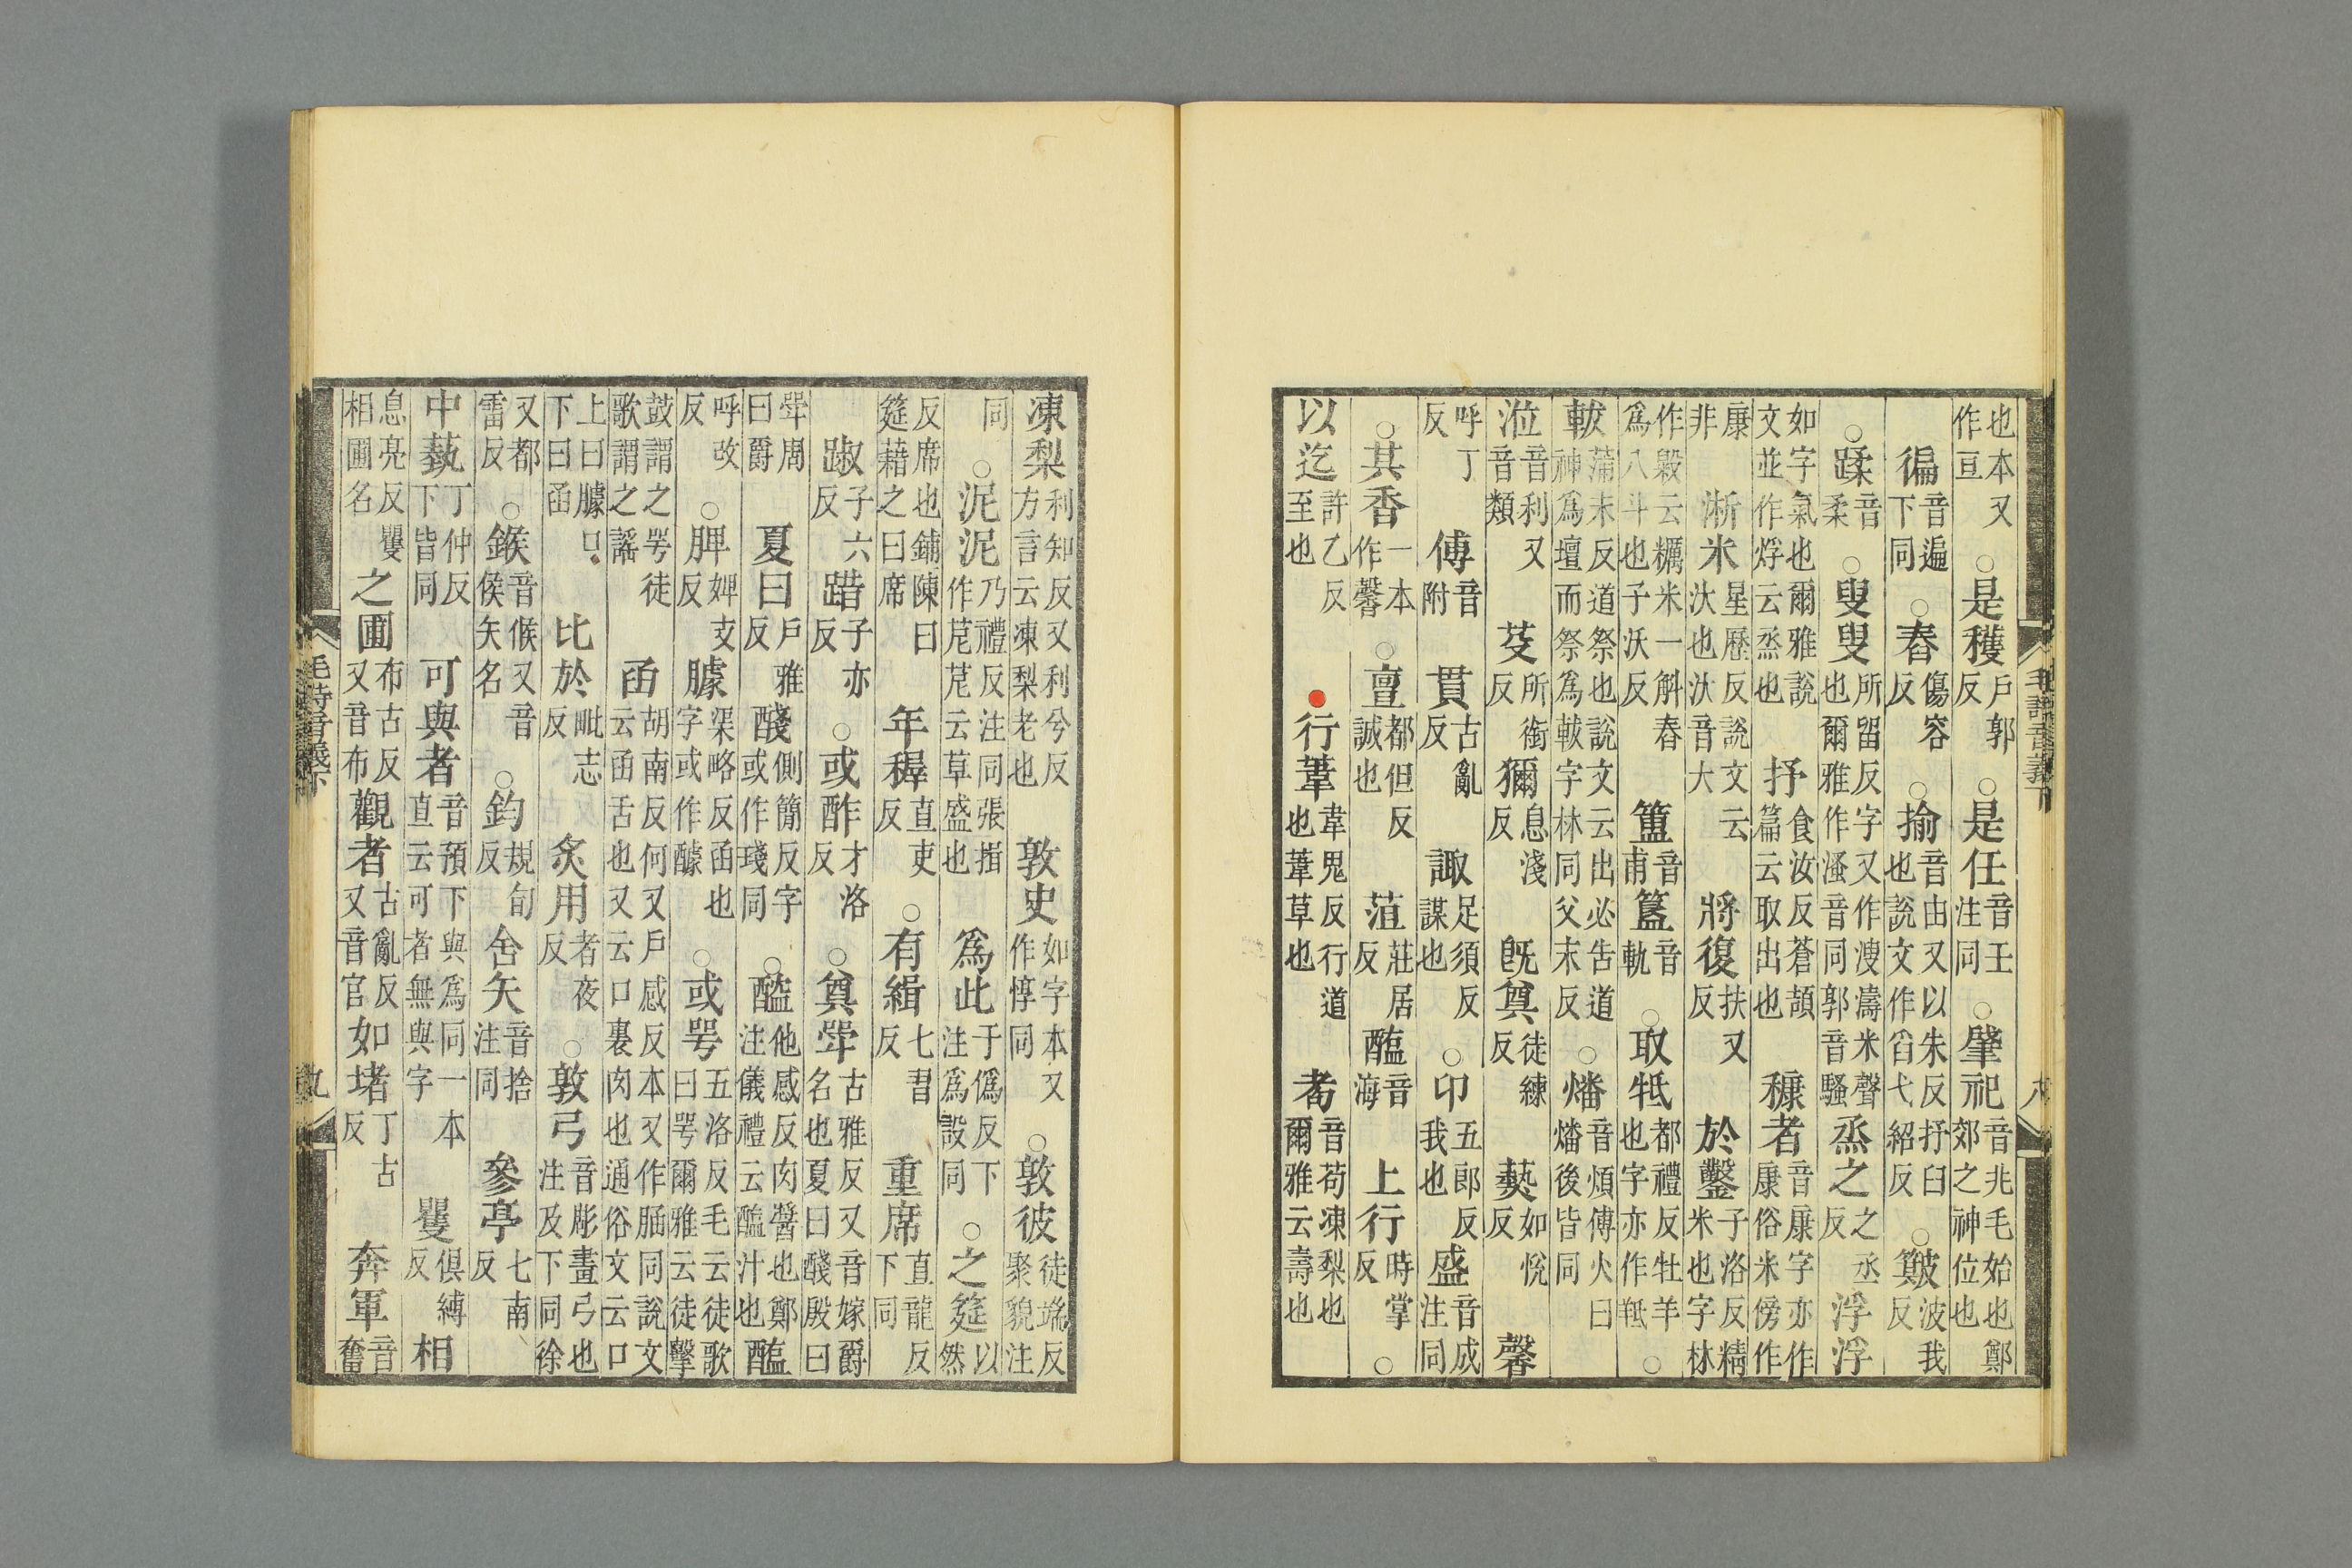 毛詩音義下
八
也本又作亘○是穫戶郭反○是任音壬注同○肇祀音兆毛始也鄭郊之神位也
徧音遍下同○舂傷容反○揄音由又以朱反抒臼也說文作舀弋紹反○簸波我反
○蹂音柔○叟叟所留反字又作溲濤米聲也爾雅作溞音同郭音騷烝之之丞反浮浮
如字氣也爾雅說文並作烰云烝也抒食汝反蒼頡篇云取出也穅者音康字亦作康俗米傍作
康非淅米星歷反說文云汏也汏音大將復扶又反於鑿子洛反精米也字林
作毇云糲米一斛舂爲八斗也子沃反簠音甫簋音軌○取羝都禮反牡羊也字亦作羝○
軷蒲末反道祭也說文云出必告道神爲壇而祭爲軷字林同父末反○燔音煩傅火曰燔後皆同
涖音利又音類芟所銜反獮息淺反旣奠徒練反爇如悅反馨
呼丁反傅音附貫古亂反諏足須反謀也○卬五郎反我也盛音成注同
○其香一本作馨○亶都但反誠也菹莊居反醢音海上行時掌反○
以迄許乙反至也行葦韋鬼反行道也葦草也耇音苟凍梨也爾雅云壽也
凍梨利知反又利兮反方言云凍梨老也敦史如字本又作惇同○敦彼徒端反聚貌注
同○泥泥乃禮反注同張揖作苨苨云草盛也爲此于僞反下注爲設同○之筵以然
反席也鋪陳曰筵藉之曰席年穉直吏反○有緝七習反重席直龍反下同
踧子六反踖子亦反○或酢才洛反○奠斝古雅反又音嫁爵名也夏曰醆殷曰
斝周曰爵夏曰戶雅反醆側簡反字或作琖同○醓他感反肉醬也鄭注儀禮云醓汁也醢
呼改反○脾婢支反臄渠略反函也字或作醵○或咢五洛反毛云徒歌曰咢爾雅云徒擊
鼓謂之咢徒歌謂之謠函胡南反何又戶感反本又作䐄同說文云函舌也又云口裏肉也通俗文云口
上曰臄口下曰函比於毗志反炙用者夜反○敦弓音彫畫弓也注及下同徐
又都雷反○鍭音候又音侯矢名○鈞規旬反舍矢音捨注同參亭七南反
中蓺丁仲反下皆同可與者音預下與爲同一本直云可者無與字矍俱縛反相
息亮反矍相圃名之圃布古反又音布觀者古亂反又音官如堵丁古反奔軍音奮
毛詩音義下
九